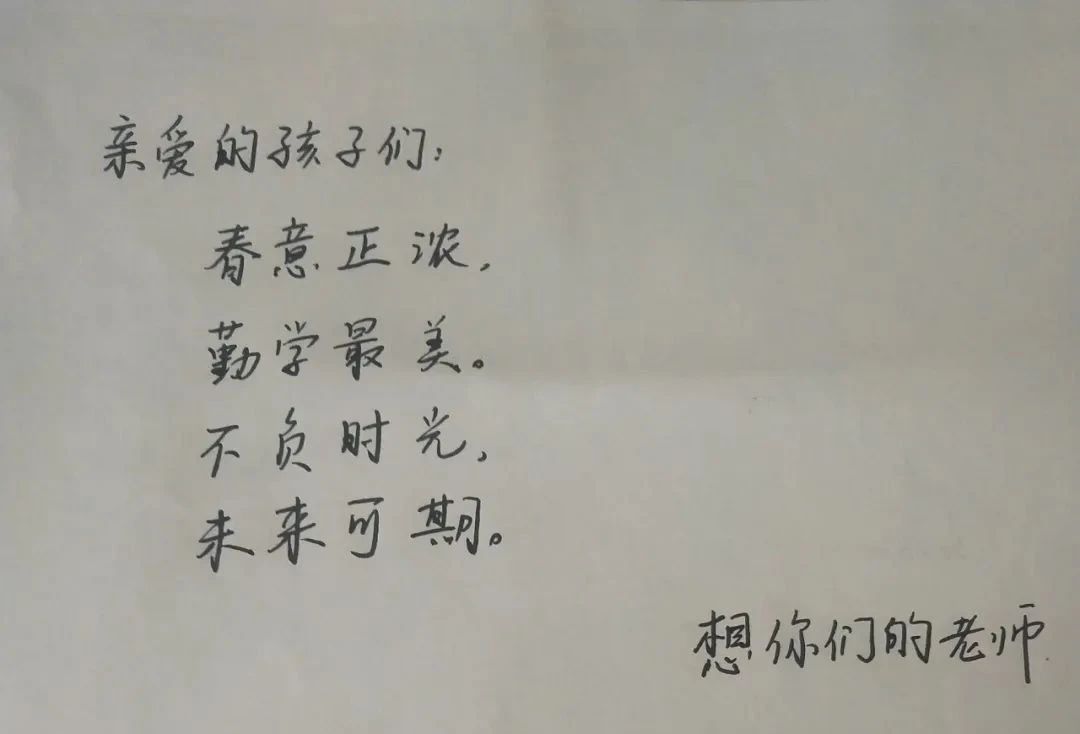 亲爱的孩子们：
春意正浓，
勤学最美。
不负时光，
未来可期。
想你们的老师